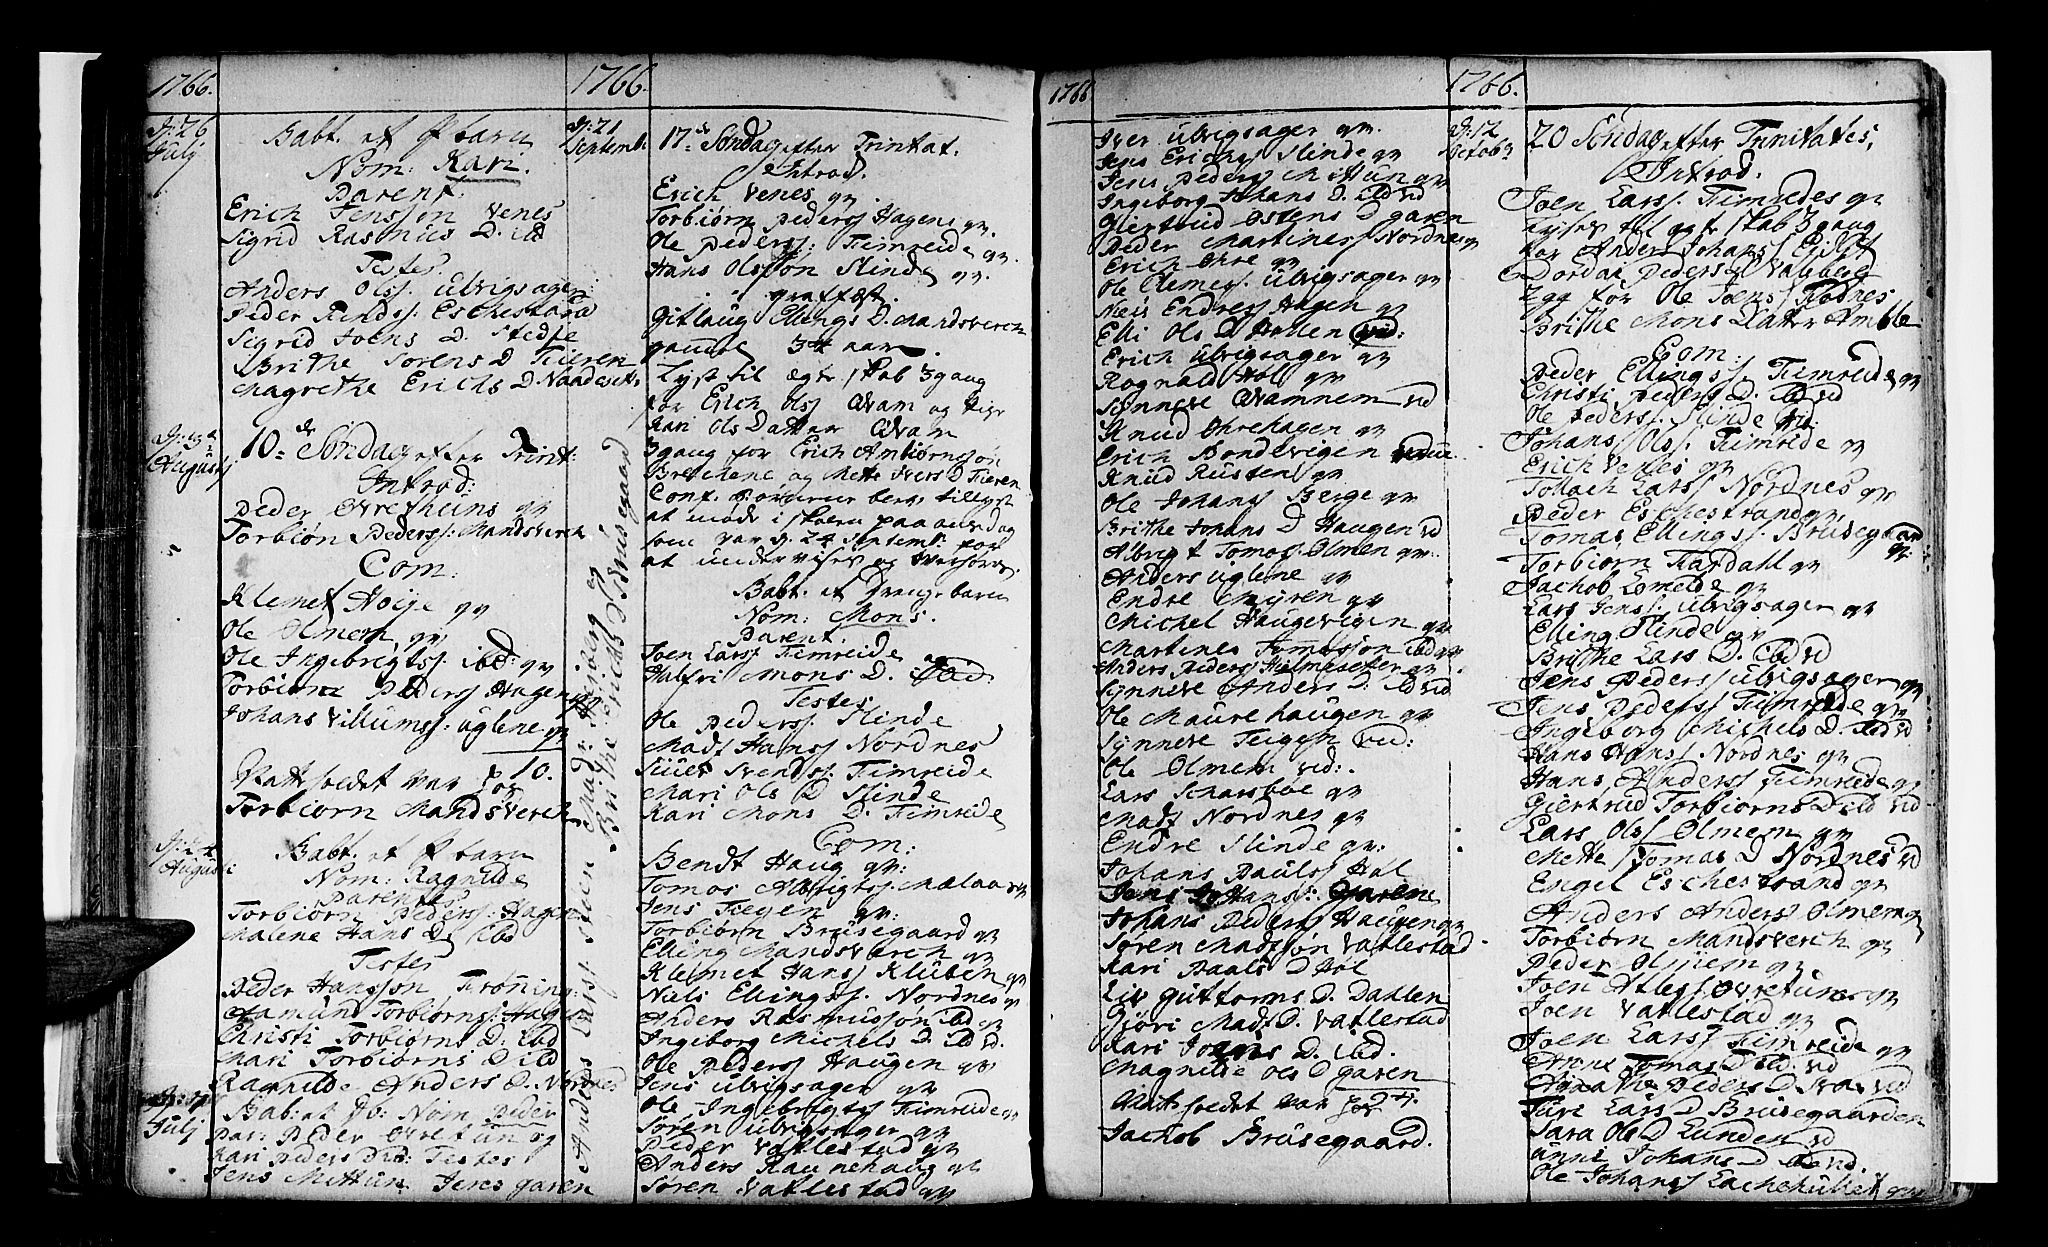 1766.
D: 26
Julj
Babt. et barn
Nom: Kari.
Parent.
Erich Jenssøn Venes
Sigrid Rasmus D. ibd
Testes.
Anders Olss. Ulvigsager
Peder Eschestrand
Sigrid Joens D. Stedje
Brithe Sørens D Fieren
Magrethe Erichs D. Naadeset
D: 3
Augustj
10de Søndag efter Trinit:
Introd:
Peder Ovrethuns qv
Torbiørn Peders: Mandsverch
Com:
Klemet Hoije qv
Ole Olmem qv
Ole Ingebrigts: ibd: qv
Torbiørn Peders Hagen qv
Johans Villums: Uglene qv
10.
Vattsoedet var for
Torbiørn Mandsverch
D: 24
Augusti
Babt. et barn
Nom: Ragnilde
Parentes
Torbiørn Peders: Hagen
Malene Hans D. ibd
Testes
Peder Hanssøn Frøning:
Aamund Torbiørns: Hagen
Christi Torbiørns D: ibd
Mari Torbiørns D ibd
Ragnilde Anders D. Nordnes
Julj
Bab: et Nom Peder
Par: Peder Ovretun og
Kari Peders D ibd: Testes
Jens Mittun Jens garen
1766.
D: 21
Septemb:
17de Søndag efter Trinitat.
Introd.
Erich Venes qv.
Torbiørn Peders Hagens qv.
Ole Peders: Fimreide qv.
Hans Olssøn Slinde qv.
grafæst.
Gitlaug Ellings D. Mandsverch
gammel 34 aar.
Lyst til ægteskab 3 gang
for Erich Olss Qvam og Pige
Kari Ols Datter Qvam
3 gang for Erich Ambiørnssøn
og Mette Ivers D Fieren
at møde i skolen paa onsdag
som var d. 24 Septemb: for
at undervises og
Babt. et Drenge barn
Nom: Mons.
Parent.
Joen Larss Fimreide og
Halfri Mons D. ibid
Testes
Ole Peders: Slinde
Mads Hans Nordnes
Siver Svends: Fimreide
Mari Ols D Slinde
Kari Mons D. Fimreide
Com:
Bendt Haug qv:
Tomos Albrigts: Mælaaren
Jens Tiegen qv:
Torbiørn Brusegaard qv
Elling Mandsverch qv
Klemet Hans Kluben qv
Niels Ellings. Nordnes qv
Anders Rasmussøn ibd qv
Ingeborg Michels D. ibd vd.
Ole Peders Haugen qv
Jens Ulvigsager qv
Ole Ingebrigts Fimreide qv
Søren Ulvigsager qv
Peder Vatlestad qv
Anders Raunehaug qv
Søren Vatlestad qv
1766
Iver Ulvigsager qv.
Jens Erichs Slinde qv
Jens Peders Mittun qv
Ingeborg Johans D. ibd vd
Giertrud Østens D garen
Peder Martines Nordnes qv
Erich Ohre qv
Ole Clemes Ulvigsager qv
Niels Endres Hagen qv
Elli Ols D Hallen vid:
Erich Ulvigsager qv
Rognald Høl qv
Synneve Qvamnem vd
Knud Ohrehagen qv
Erich Bondevigen
Knud Rusten qv
Ole Johans Berge qv
Brithe Johans D Haugen vd
Albrigt Tomos: Olmen qv:
Anders Uglene qv
Endre Myren qv
Michel Haugevigen qv
Martines Tomossøn ibd qv
Anders Peders Hielmeseter qv
Synneve Anders D: ibd vd
Ole Maurehaugen qv
Synneve Teigen vid:
Ole Olmem vid:
Lars Scharsbøe qv
Mads Nordnes qv
Endre Slinde qv:
Johans Pauls Høl
Jens Johans: Garen
Johans Peders Haugen qv
Søren Madssøn Vatlestad
Kari Paals D Høl
Liv Guttorms D. Dahlen
Gjøri Mads D. Vatlestad
Kari Joens D. ibd.
Magnilde Ols D garen
soedet var for
Jachob Brusegaard.
1766.
D: 12
Octobr
20 Søndag efter Trinitates.
Introd.
Joen Larss. Fimredes qv
Lyses til ægteskab 3 gang
for Anders Johans
Dordæ Peders D Valeberg
2 gg for Ole Joens Rodnes
Brithe Mons Datter Amble
Com:
Peder Ellings Fimreide qv
Christi Peders D. ibd vd
Ole Peders. Slinde vid
Johans Ols. Fimreide qv
Erich Venes qv
Tollach Lars Nordnes qv
Peder Eschestrand qv
Tomas Ellings. Brusegaard
qv.
Torbiørn Kardahl qv
Jachob Lomeide qv
Lars Jens: Ulvigsager qv
Elling Slinde qv
Brithe Lars D. ibd vd
Jens Peders Ulvigsager qv
Jens Peders Fimreide qv
Ingeborg Michels D. ibd vd
Hans Hans Nordnes qv
Hans Anders Fimreide qv
Giertrud Torbiørns D ibd vd
Lars Ols Olmem qv
Mette Tomas D Nordnes vd
Engel Eschestrand qv
Anders Anders Olmem qv
Torbiørn Mandsverch qv
Peder Olmem qv
Joen Atles Ovretun qv
Joen Vatlestad qv
Joen Lars Fimreide qv
Anne Tomas D ibd. vd
Peders D vd
Turi Lars D Brusegaarden
Sara Ols D Lunden vd
Unni Johans D ibd vd.
Ole Johans qv
Anders Larss. Steen Mad: Feiberg og
Brithe Erichs D Brusegaard